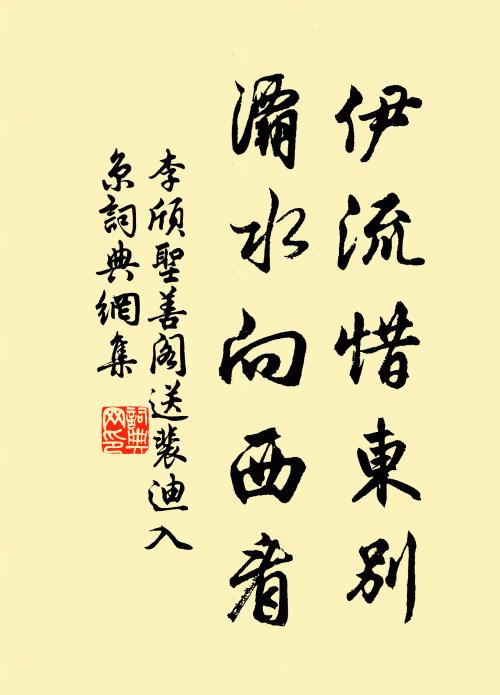 伊流惜東別
灞水向西看
李頎聖善閣送裴迪入
京詞典網集
詞典
网印